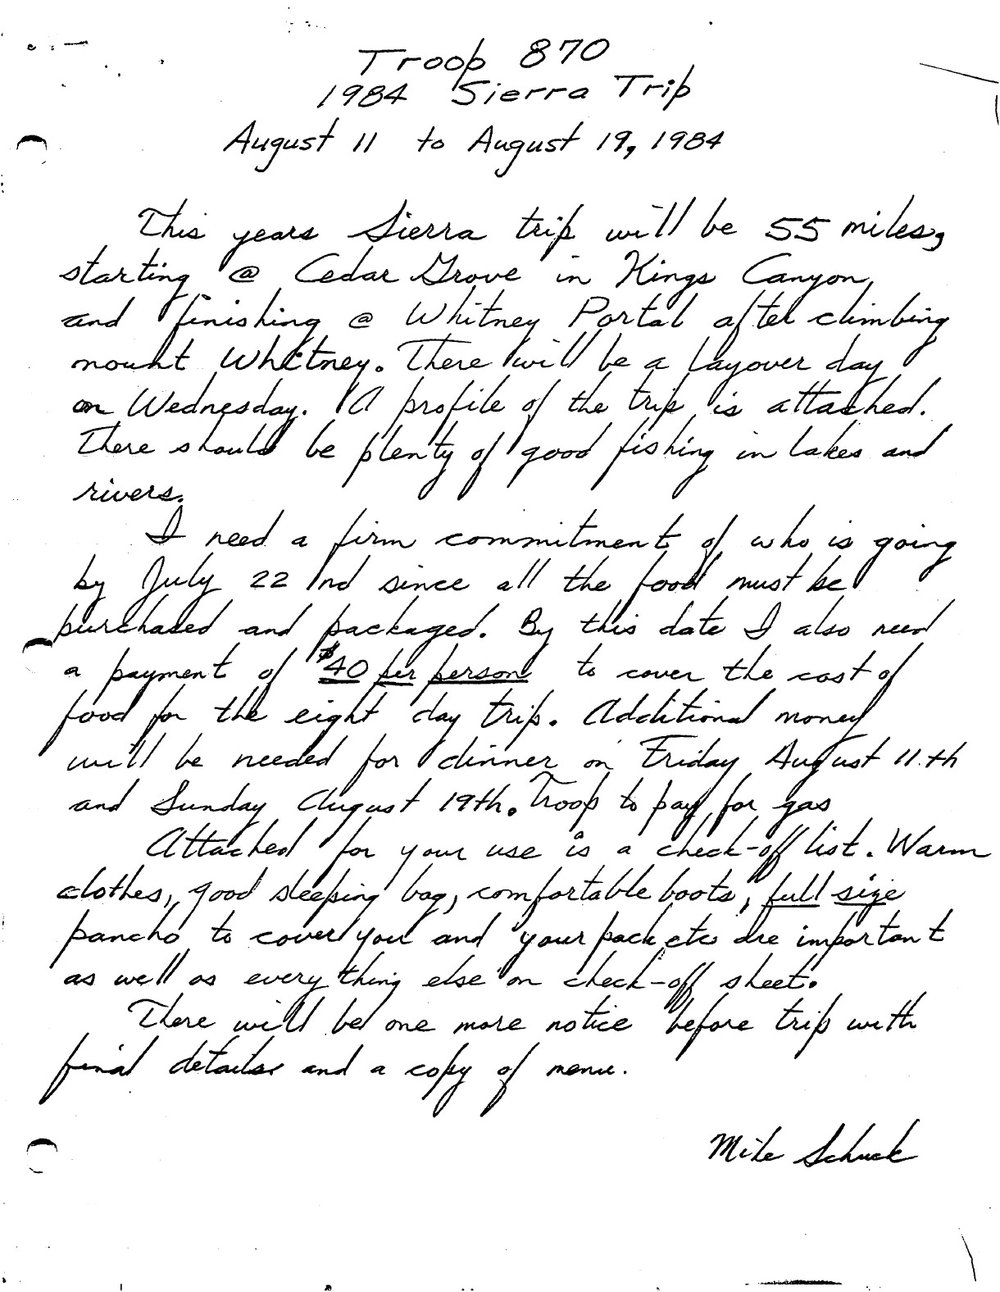 Troop 870
1984 Sierra Trip
August 11 to August 19, 1984
This years Sierra trip will be 55 miles,
starting @ Cedar Grove in Kings Canyon,
and finishing @ Whitney Portal after climbing
mount Whitney. There will be a layover day
on Wednesday. A profile of the trip is attached.
There should be plenty of good fishing in lakes and
rivers.
I need a firm commitment of who is going
by July 22 nd since all the food must be
purchased and packaged. By this date I also need
a payment of $40 per person to cover the cost of
food for the eight day trip. Additional money
will be needed for dinner on Friday August 11th
and Sunday August 19th. Troop to pay for gas
Attached for your use is a check-off list. Warm
clothes, good sleeping bag, comfortable boots, full size
pancho to cover you and your pack, etc are important
as well as every thing else on check-off sheet.
There will be one more notice before trip with
final details and a copy of menu.
Mike Schuck